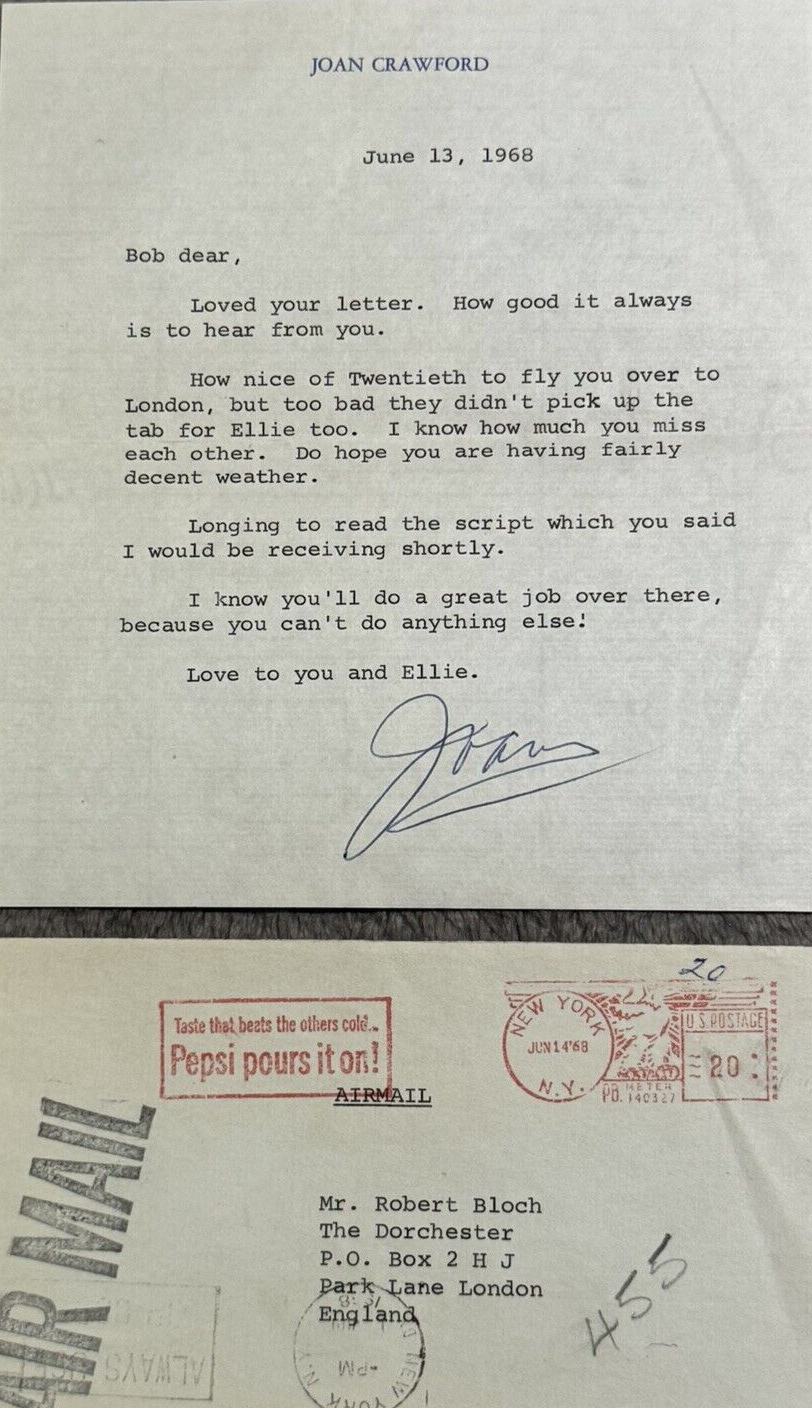 JOAN CRAWFORD
June 13, 1968
Bob dear,
Loved your letter. How good it always
is to hear from you.
How nice of Twentieth to fly you over to
London, but too bad they didn't pick up the
tab for Ellie too. I know how much you miss
each other. Do hope you are having fairly
decent weather.
Longing to read the script which you said
I would be receiving shortly.
I know you'll do a great job over there,
because you can't do anything else!
Love to you and Ellie.
Joan
20
Taste that beats the others cold...
Pepsi pours it on!
NEW YORK
JUN 14 '68
N.Y.
U.S. POSTAGE
20
PB. METER
140327
AIRMAIL
AIR MAIL
Mr. Robert Bloch
The Dorchester
P.O. Box 2 H J
Park Lane London
England
455
ALWAYS
PM
NEW YORK N.Y.